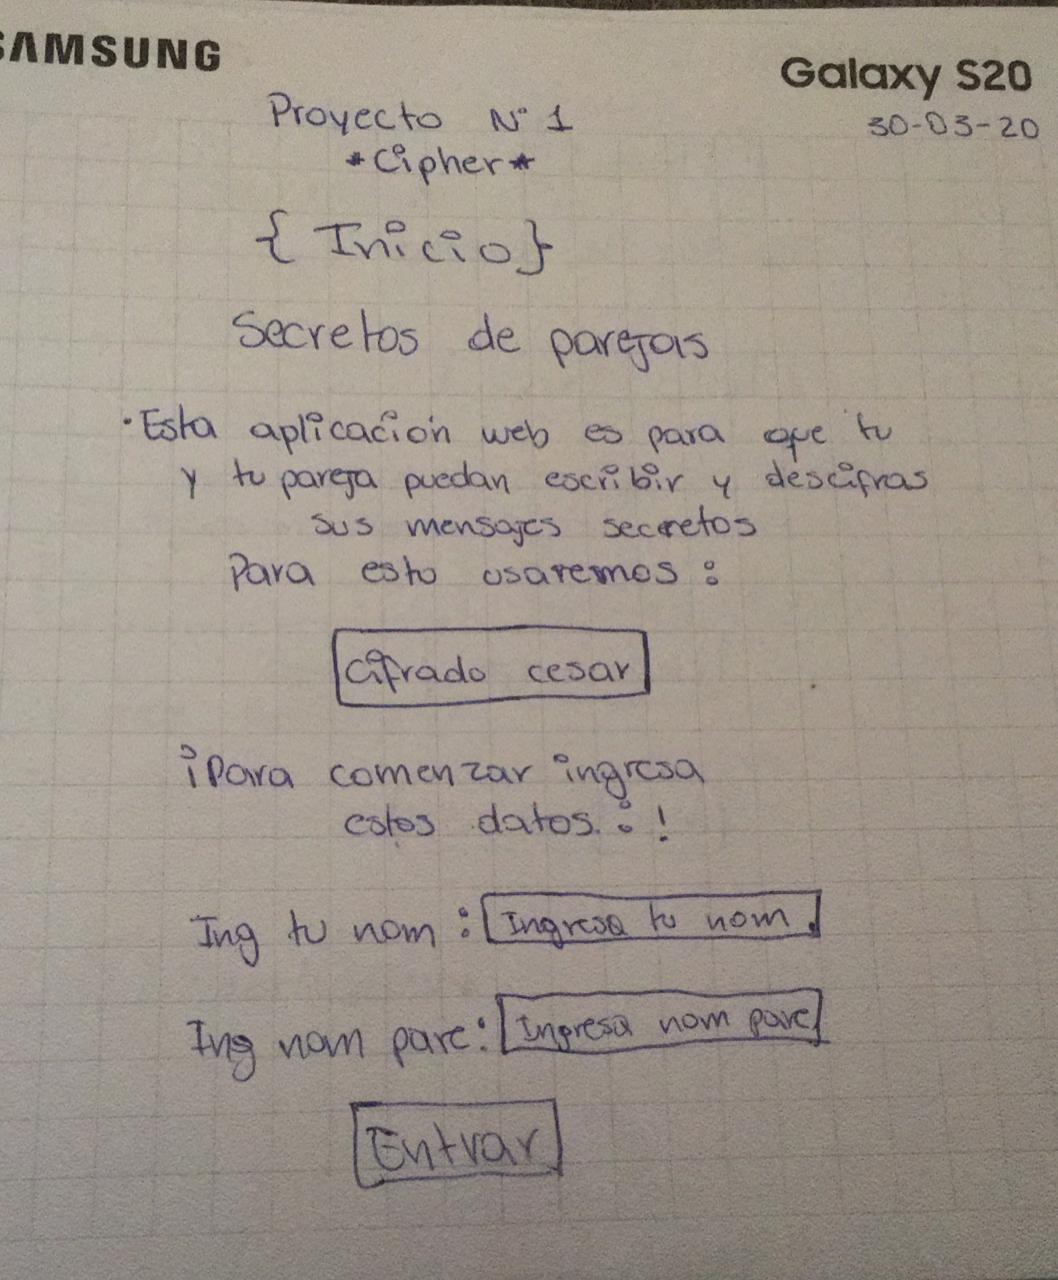 SAMSUNG
Galaxy S20
30-03-20
Proyecto N° 1
*Cipher*
{ Inicio}
Secretos de parejas
·Esta aplicación web es para que tu
y tu pareja puedan escribir y descifras
sus mensajes secretos
Para esto usaremos :
Cifrado cesar
¡Para comenzar ingresa
estos datos. : !
Ing tu nom : Ingresa tu nom.
Ing nom pare: Ingresa nom pare
Entrar